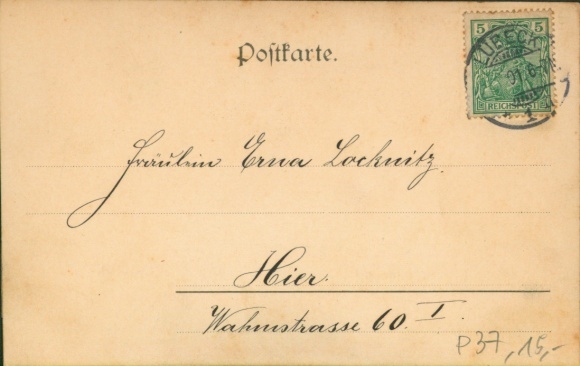 Postkarte.
5 5
REICHSPOST
LÜBECK
1
Fräulein Erna Locknitz.
Hier.
Wahmstrasse 60. I.
P37, 15,-